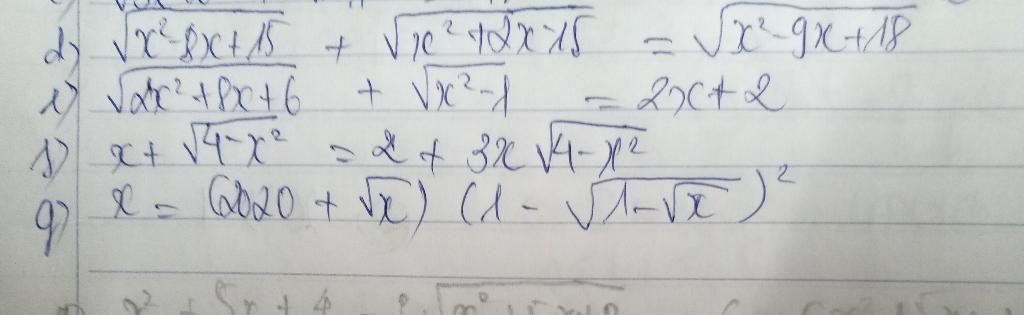 d) √(x²-8x+15) + √(x²+2x-15) = √(x²-9x+18)
e) √(2x²+8x+6) + √(x²-1) = 2x+2
f) x + √(4-x²) = 2 + 3x√(4-x²)
g) x = (2020 + √x) (1 - √(1-√x))²